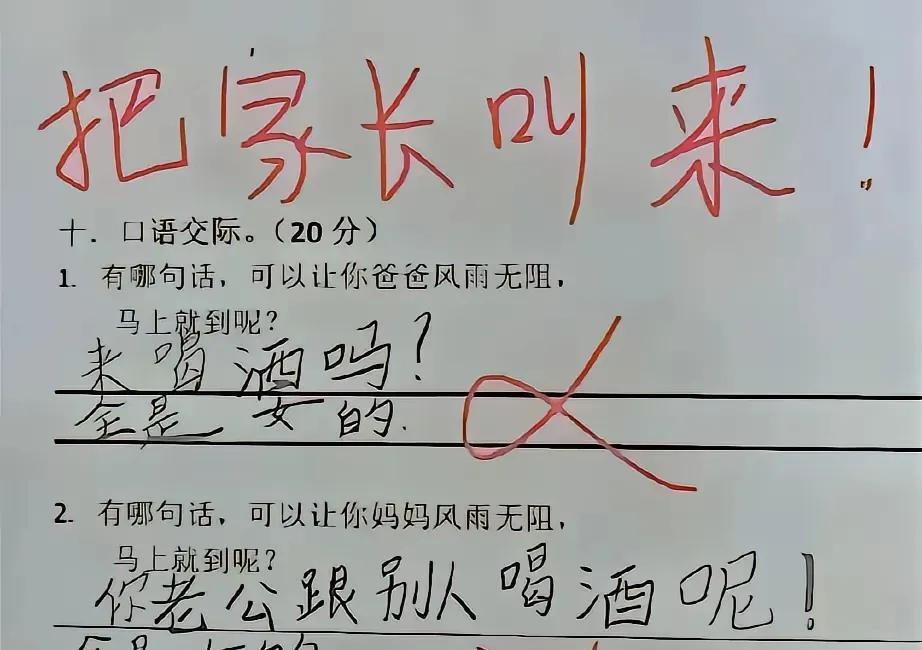 把家长叫来！
十．口语交际。（20分）
1. 有哪句话，可以让你爸爸风雨无阻，
马上就到呢？
来喝酒吗？
全是女的.
2. 有哪句话，可以让你妈妈风雨无阻，
马上就到呢？
你老公跟别人喝酒呢！